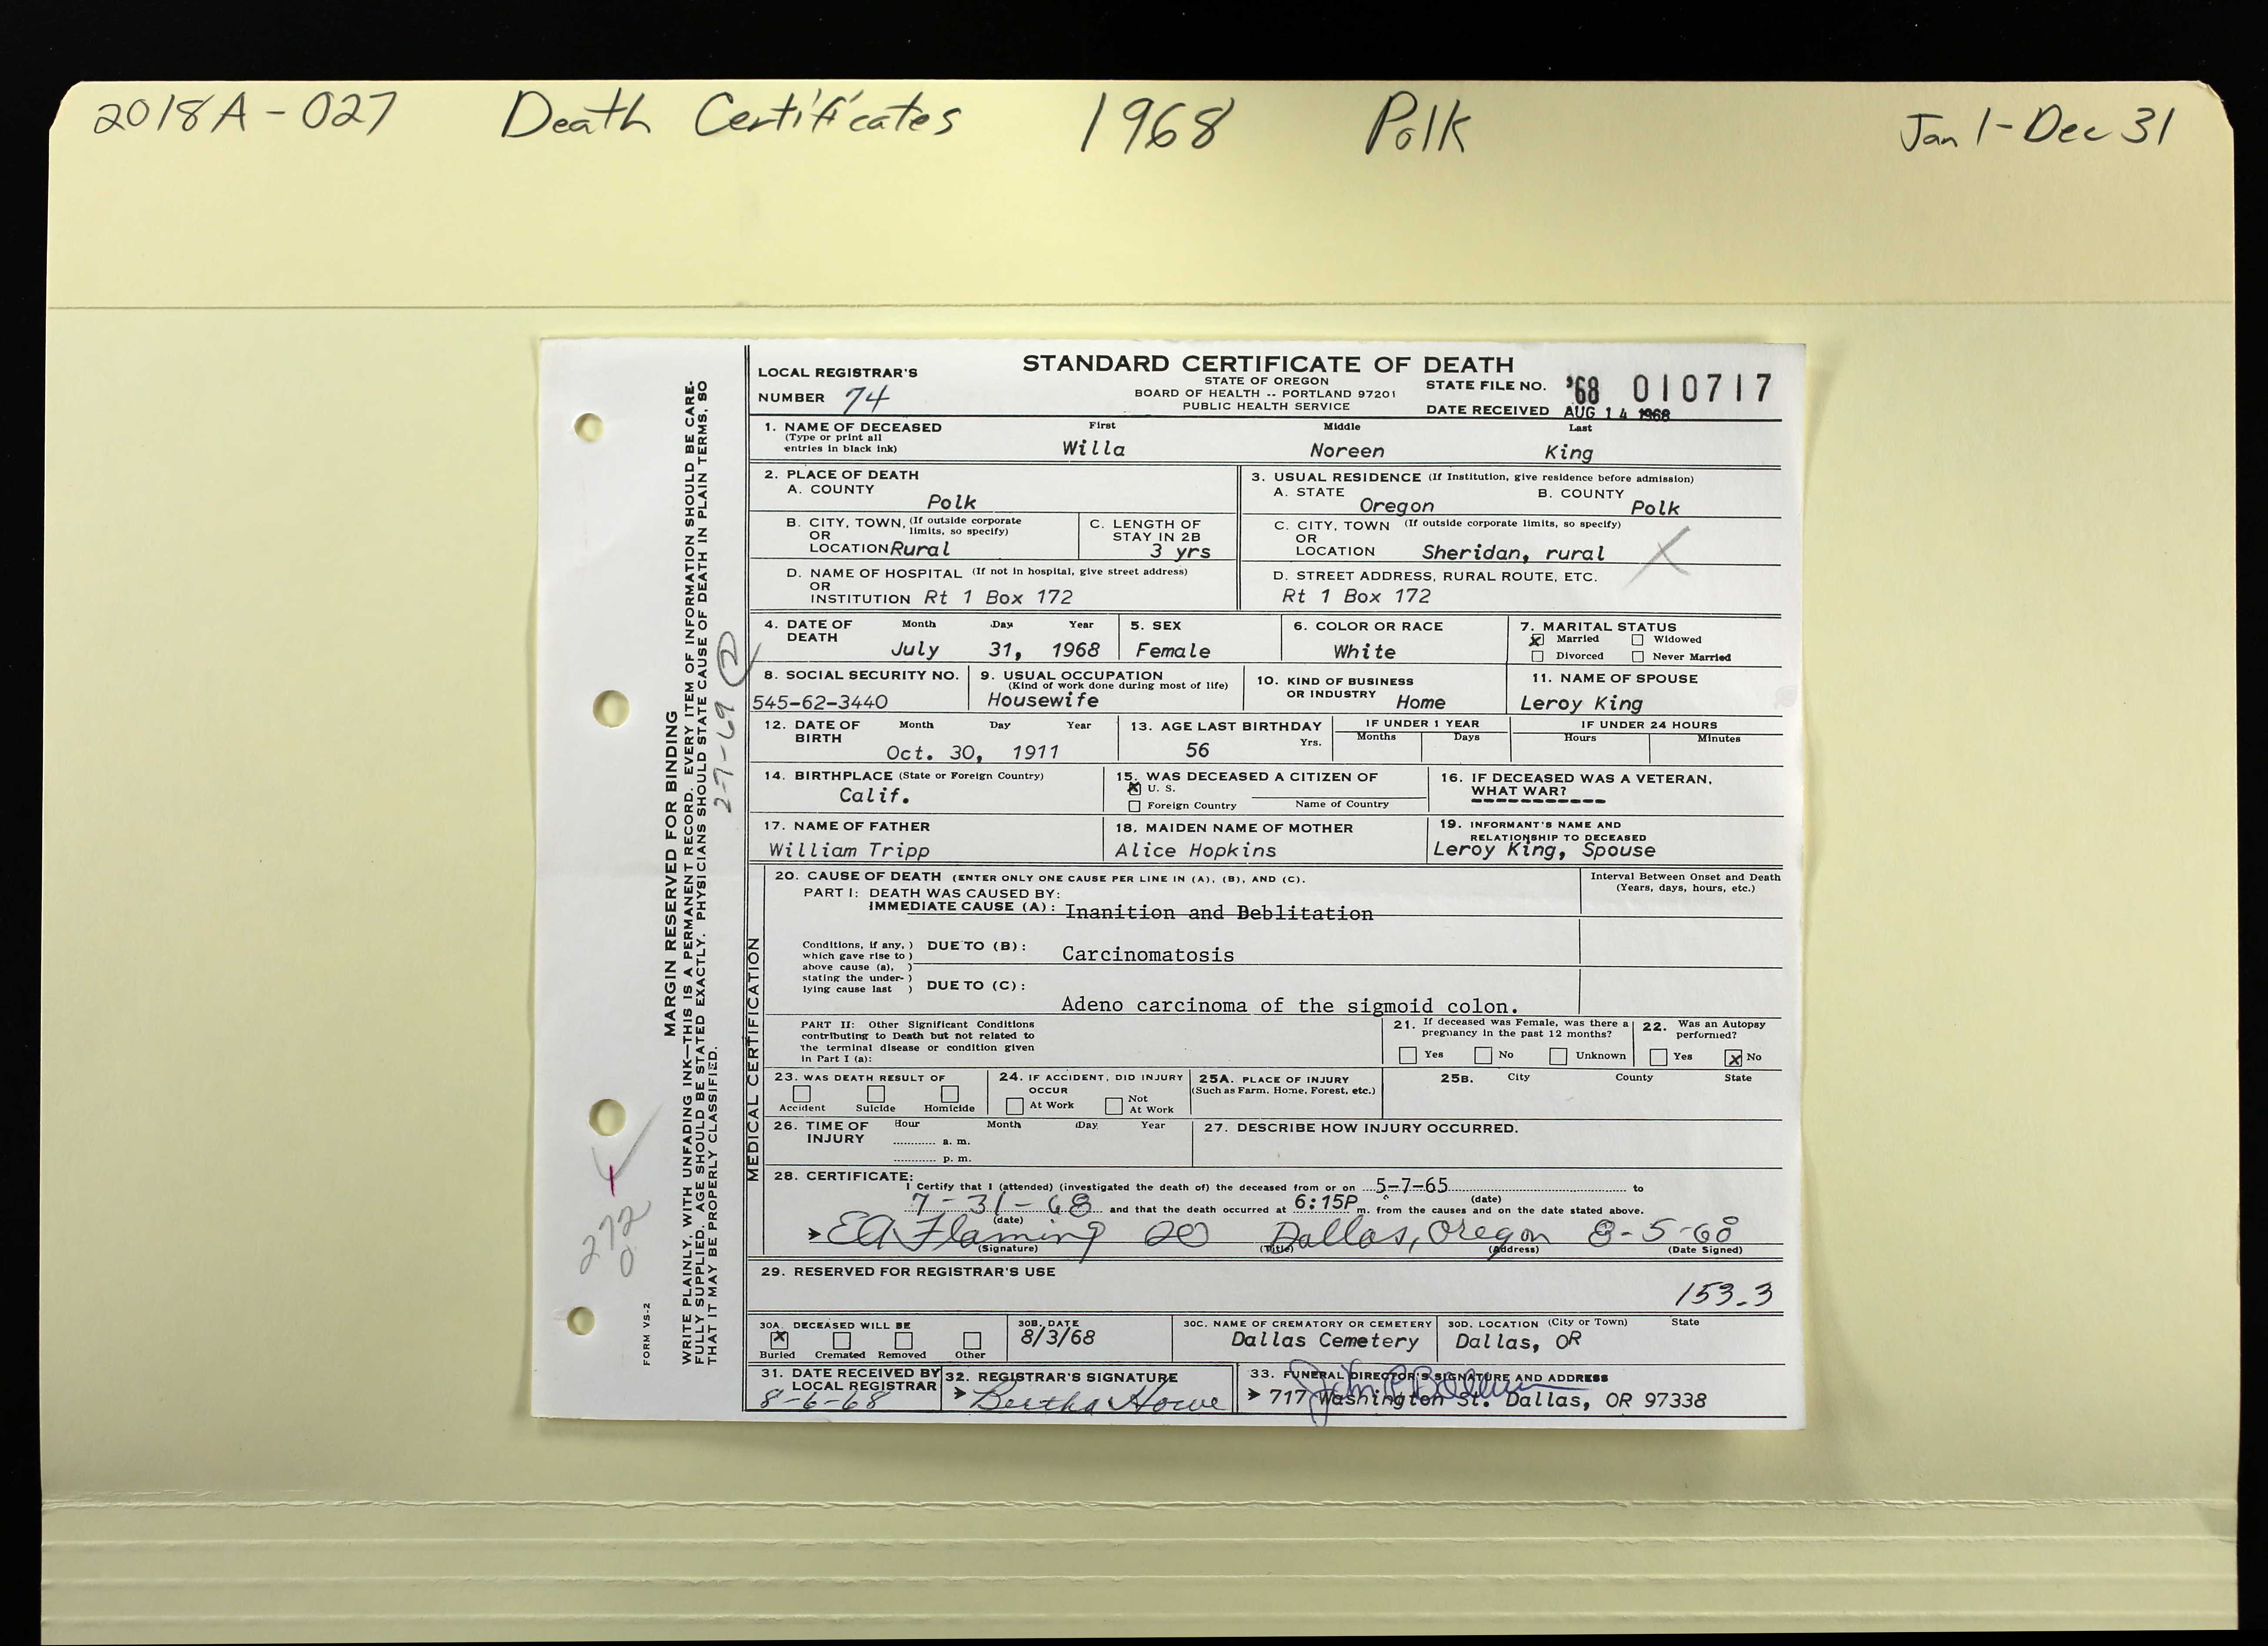 2018A-027 Death Certificates 1968 Polk Jan 1-Dec 31
STANDARD CERTIFICATE OF DEATH
STATE OF OREGON
BOARD OF HEALTH -- PORTLAND 97201
PUBLIC HEALTH SERVICE
LOCAL REGISTRAR'S
NUMBER 74
STATE FILE NO. '68 010717
DATE RECEIVED AUG 14 1968
1. NAME OF DECEASED First Middle Last
(Type or print all
entries in black ink) Willa Noreen King
2. PLACE OF DEATH
A. COUNTY
Polk
B. CITY, TOWN, (If outside corporate
OR limits, so specify)
LOCATION Rural
C. LENGTH OF
STAY IN 2B
3 yrs
D. NAME OF HOSPITAL (If not in hospital, give street address)
OR
INSTITUTION Rt 1 Box 172
3. USUAL RESIDENCE (If Institution, give residence before admission)
A. STATE B. COUNTY
Oregon Polk
C. CITY, TOWN (If outside corporate limits, so specify)
OR
LOCATION Sheridan, rural
D. STREET ADDRESS, RURAL ROUTE, ETC.
Rt 1 Box 172
4. DATE OF Month Day Year
DEATH
July 31, 1968
5. SEX
Female
6. COLOR OR RACE
White
7. MARITAL STATUS
Married Widowed
Divorced Never Married
8. SOCIAL SECURITY NO.
545-62-3440
9. USUAL OCCUPATION
(Kind of work done during most of life)
Housewife
10. KIND OF BUSINESS
OR INDUSTRY Home
11. NAME OF SPOUSE
Leroy King
12. DATE OF Month Day Year
BIRTH
Oct. 30, 1911
13. AGE LAST BIRTHDAY
56 Yrs.
IF UNDER 1 YEAR
Months Days
IF UNDER 24 HOURS
Hours Minutes
14. BIRTHPLACE (State or Foreign Country)
Calif.
15. WAS DECEASED A CITIZEN OF
U. S.
Foreign Country Name of Country
16. IF DECEASED WAS A VETERAN,
WHAT WAR?
17. NAME OF FATHER
William Tripp
18. MAIDEN NAME OF MOTHER
Alice Hopkins
19. INFORMANT'S NAME AND
RELATIONSHIP TO DECEASED
Leroy King, Spouse
MEDICAL CERTIFICATION
20. CAUSE OF DEATH (ENTER ONLY ONE CAUSE PER LINE IN (A), (B), AND (C).
PART I: DEATH WAS CAUSED BY:
IMMEDIATE CAUSE (A): Inanition and Deblitation
Interval Between Onset and Death
(Years, days, hours, etc.)
Conditions, if any, ) DUE TO (B): Carcinomatosis
which gave rise to )
above cause (a), )
stating the under- )
lying cause last ) DUE TO (C):
Adeno carcinoma of the sigmoid colon.
PART II: Other Significant Conditions
contributing to Death but not related to
the terminal disease or condition given
in Part I (a):
21. If deceased was Female, was there a
pregnancy in the past 12 months?
Yes No Unknown
22. Was an Autopsy
performed?
Yes x No
23. WAS DEATH RESULT OF
Accident Suicide Homicide
24. IF ACCIDENT, DID INJURY
OCCUR
At Work Not
At Work
25A. PLACE OF INJURY
(Such as Farm, Home, Forest, etc.)
25B. City County State
26. TIME OF Hour Month Day Year
INJURY a. m.
p. m.
27. DESCRIBE HOW INJURY OCCURRED.
28. CERTIFICATE:
I Certify that I (attended) (investigated the death of) the deceased from or on 5-7-65 to
(date)
7-31-68 and that the death occurred at 6:15P m. from the causes and on the date stated above.
(date)
EA Flaming DO Dallas, Oregon 8-5-68
(Signature) (Title) (Address) (Date Signed)
29. RESERVED FOR REGISTRAR'S USE
153.3
30A. DECEASED WILL BE
x
Buried Cremated Removed Other
30B. DATE
8/3/68
30C. NAME OF CREMATORY OR CEMETERY
Dallas Cemetery
30D. LOCATION (City or Town) State
Dallas, OR
31. DATE RECEIVED BY
LOCAL REGISTRAR
8-6-68
32. REGISTRAR'S SIGNATURE
Bertha Howe
33. FUNERAL DIRECTOR'S SIGNATURE AND ADDRESS
717 Washington St. Dallas, OR 97338
MARGIN RESERVED FOR BINDING
WRITE PLAINLY, WITH UNFADING INK—THIS IS A PERMANENT RECORD. EVERY ITEM OF INFORMATION SHOULD BE CARE-
FULLY SUPPLIED. AGE SHOULD BE STATED EXACTLY. PHYSICIANS SHOULD STATE CAUSE OF DEATH IN PLAIN TERMS, SO
THAT IT MAY BE PROPERLY CLASSIFIED.
2-7-69 2
FORM VS-2
272
0